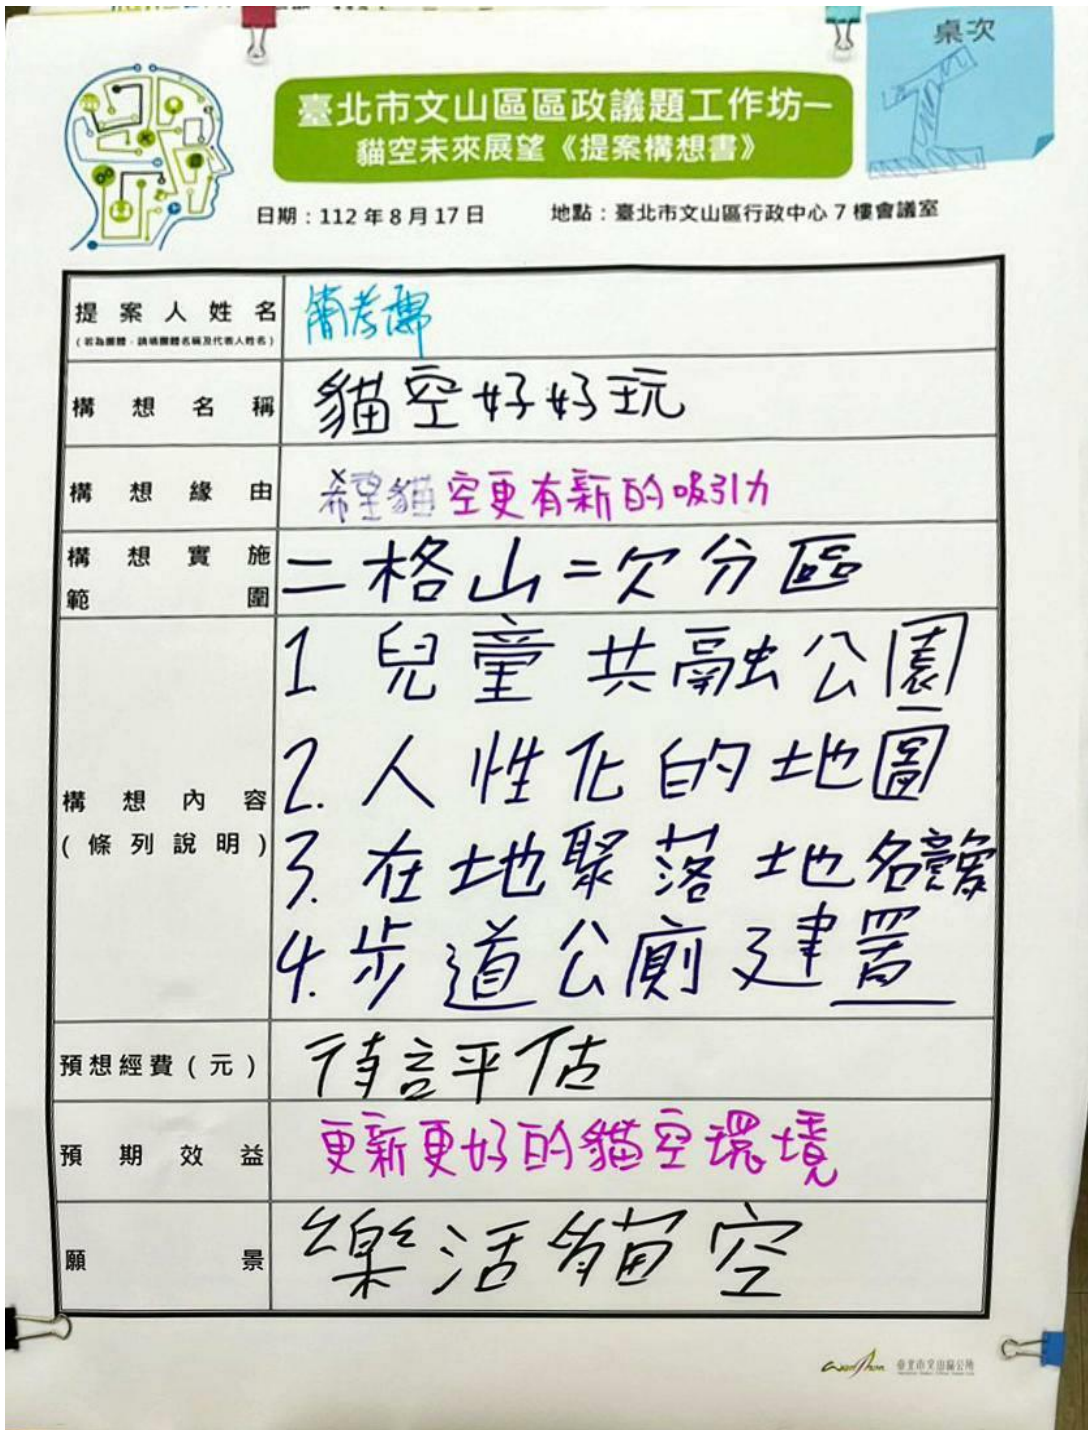 桌次
工
臺北市文山區區政議題工作坊—
貓空未來展望《提案構想書》
日期：112年8月17日 地點：臺北市文山區行政中心7樓會議室
提案人姓名 簡孝
(若為團體，請填團體名稱及代表人姓名)
構想名稱 貓空好好玩
構想緣由 希望貓空更有新的吸引力
構想實施範圍 二格山二次分區
構想內容(條列說明)
1 兒童共融公園
2. 人性化的地圖
3. 在地聚落地名
4. 步道公廁建置
預想經費(元) 待評估
預期效益 更新更好的貓空環境
願景 樂活貓空
臺北市文山區公所